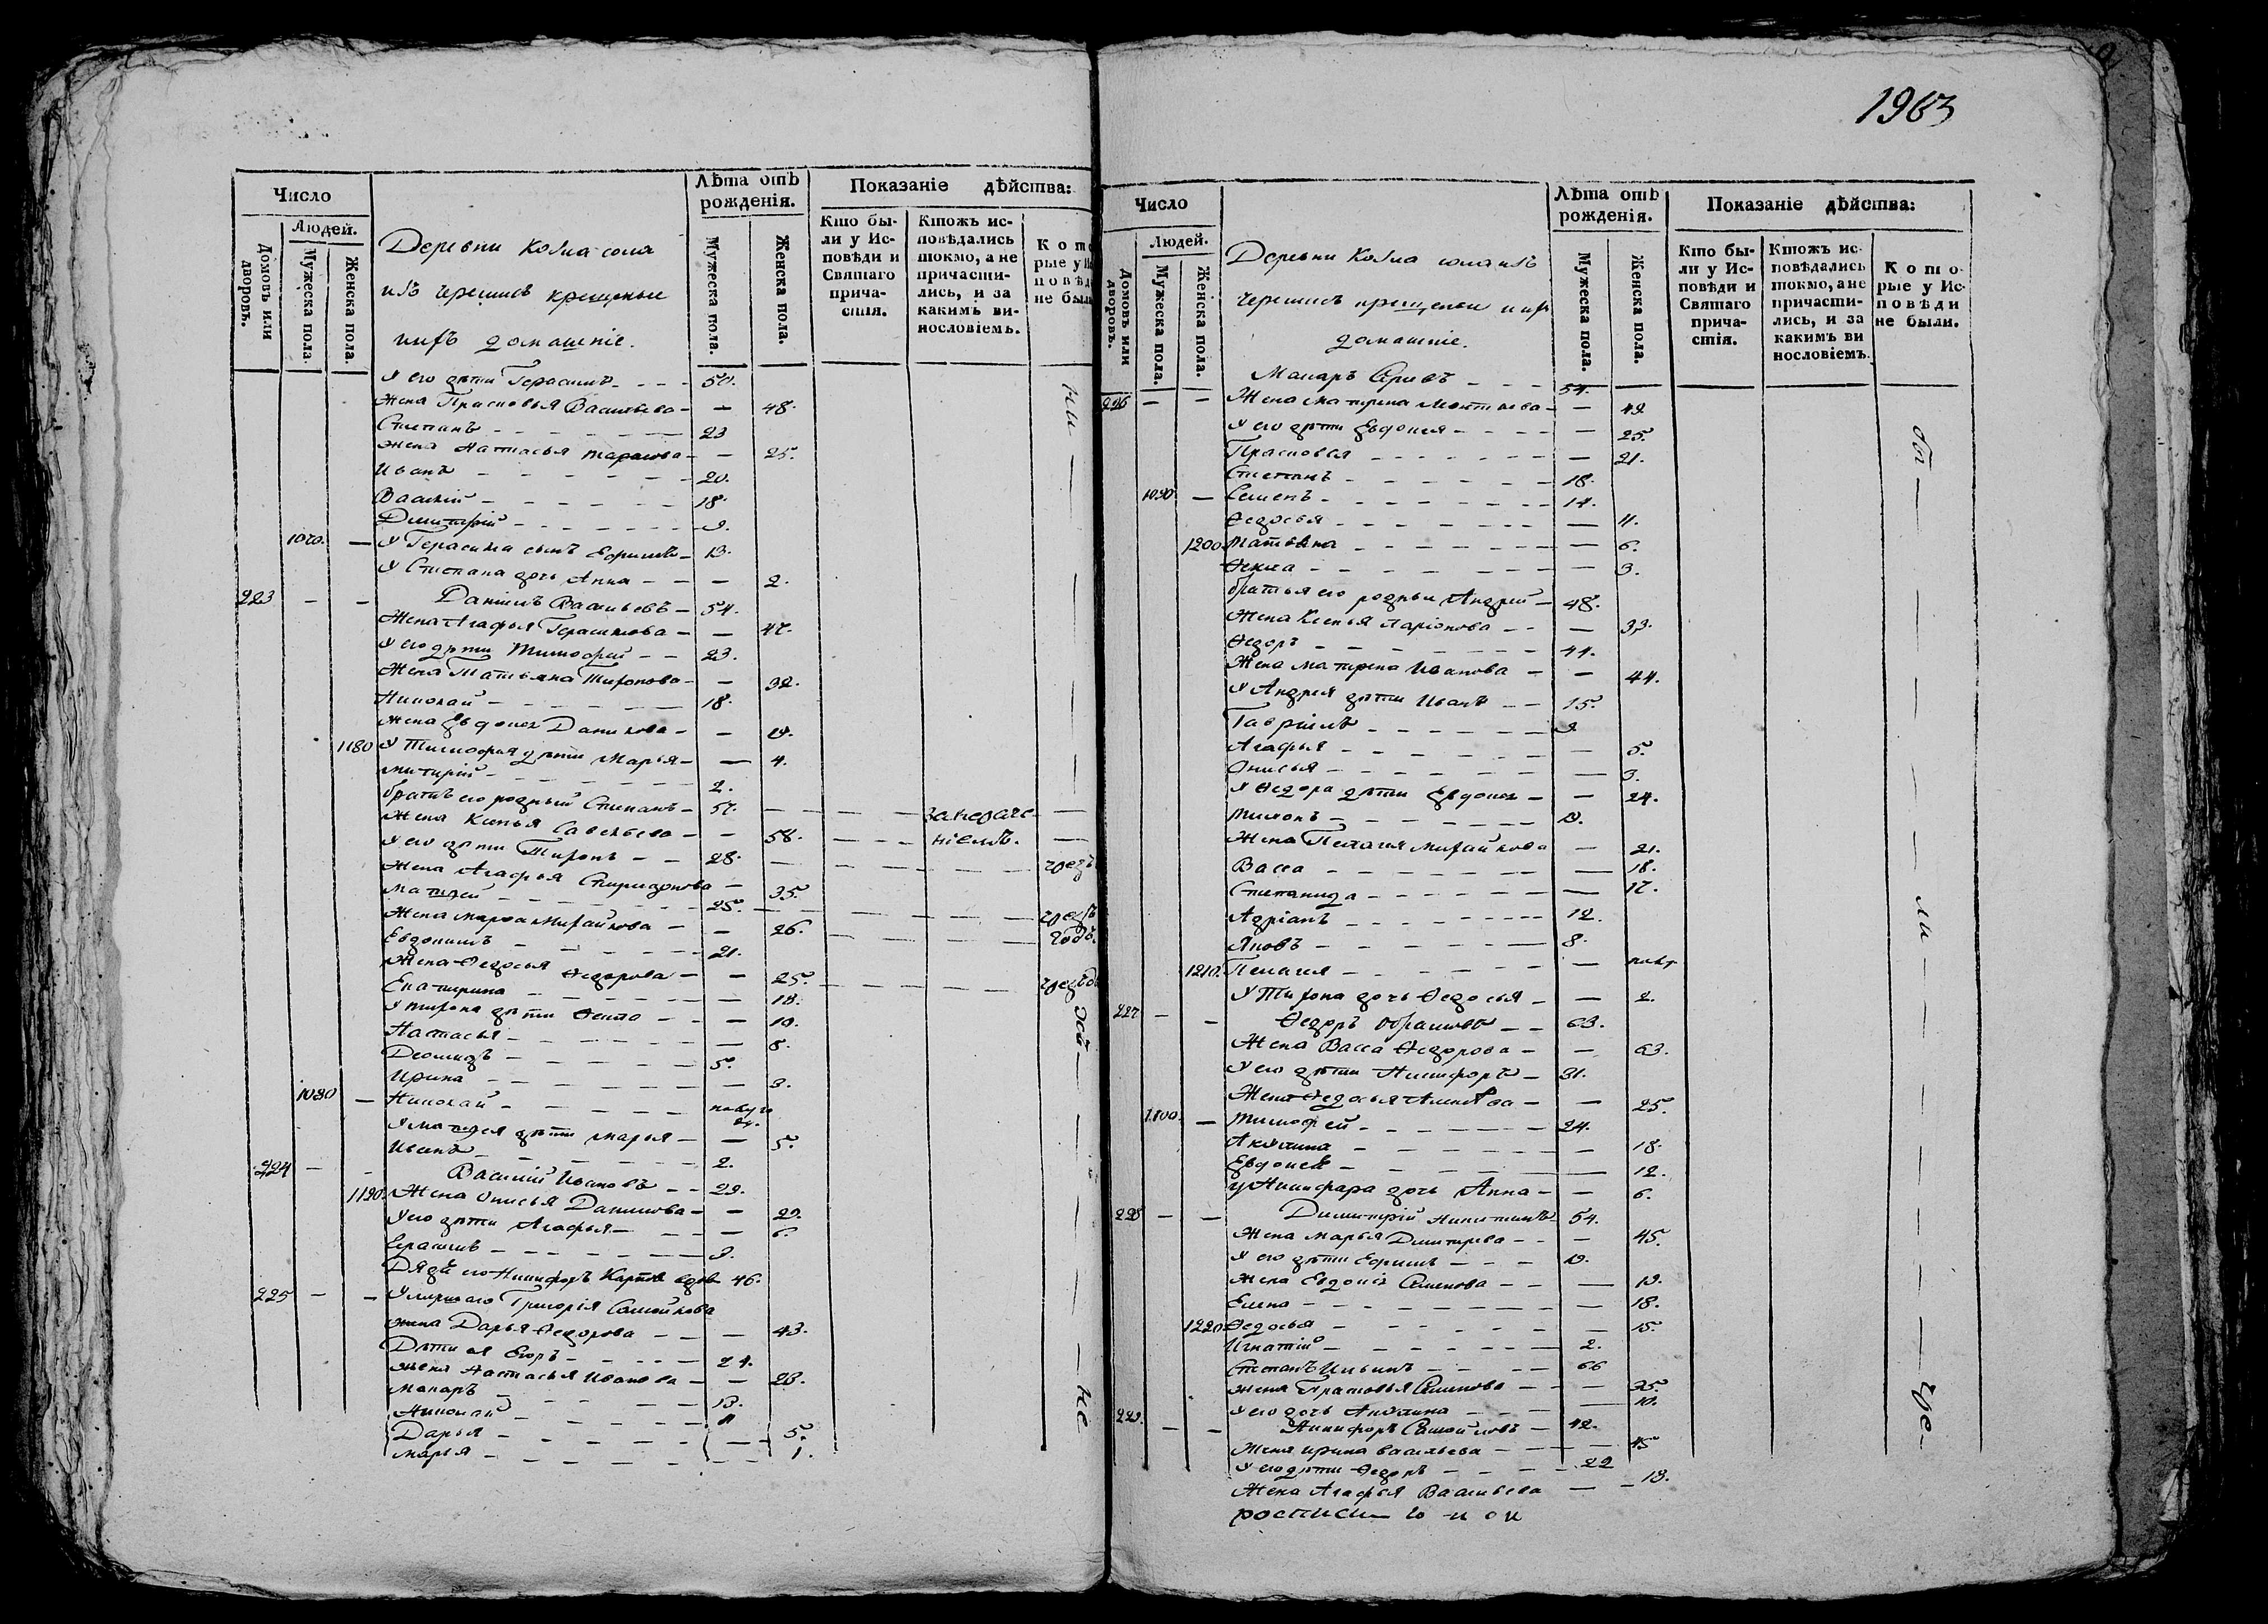 Число
Людей.
Домовъ или дворовъ.
Мужеска пола.
Женска пола.
Деревни Козма сола
изъ черемисъ крещеные
ихъ домашніе.
Лѣта отъ рожденія.
Мужеска пола.
Женска пола.
Показаніе дѣйства:
Кто были у Исповѣди и Святаго причастія.
Ктожъ исповѣдались токмо, а не причастились, и за какимъ винословіемъ.
У его дѣти Герасимъ - - - 50.
Жена Прасковья Васильева - — 48.
Степанъ - - - 23
жена Настасья Тарасова - — 25.
Иванъ - - - 20.
Василій - - - 18.
Димитрій - - - 9.
1070. — У Герасима сынъ Ефримъ - 13.
У Степана дочь Анна - - — 2.
223 — — Данилъ Васильевъ - 54.
Жена Агафья Герасимова - — 47.
У его дѣти Тимофей - - 23.
Жена Татьяна Тихонова - — 32.
Николай - - - 18.
жена Евдокея Данилова - — 19.
1180 У Тимофея дѣти Марья - — 4.
Митирій - - - 2.
братъ его родный Степанъ - 57. — — —
Жена Ксенья Савельева - — 58. - - - ніемъ.
У его дѣти Тихонъ - - 28.
Жена Агафья Спиридонова - 35.
Матвей - - - 25.
Жена Марфа Михайлова - — 26.
Евдокимъ - - - 21.
Жена Ѳедосья Ѳедорова - — 25.
Екатирина - - - — 18.
У Тихона дѣти - - — 10.
Настасья - - - — 8.
Деомидъ - - - 5.
Ирина - - - — 3.
1080 — Николай - - -
У Матвея дѣти Марья - — 5.
- - - 2.
224 — - Василий Ивановъ - - 29.
1190. Жена Онисья Данилова - — 29.
У его дѣти Агафья - — 6.
Герасимъ - - - 3.
Дядя его Никифоръ Карпов вдов 46.
225 — — Умершаго Григорія Самойлова
жена Дарья Ѳедорова - - — 43.
Дѣти ея Егоръ - - - 24.
жена Настасья Иванова - — 23.
Макаръ - - - 13.
Николай - - - 11
Дарья - - - — 5.
Марья - - - — 1.
ни
не
1963
Число
Людей.
Домовъ или дворовъ.
Мужеска пола.
Женска пола.
Деревни Козма сола изъ
черемисъ крещеныи ихъ
домашніе.
Лѣта отъ рожденія.
Мужеска пола.
Женска пола.
Показаніе дѣйства:
Кто были у Исповѣди и Святаго причастія.
Ктожъ исповѣдались токмо, а не причастились, и за какимъ винословіемъ.
Которые у Исповѣди не были.
Макаръ - - - 54.
226 — — Жена Матрена - — 49.
У его дѣти Евдокея - - - — 25.
Прасковья - - - — 21.
Степанъ - - - 18.
1090. — Семенъ - - - 14.
Ѳедосья - - - — 11.
1200 Матвѣна - - - — 6.
Ѳекла - - - — 3.
братья его родныи Андрей - 48.
Жена Ксенья Ларіонова - - — 33.
Ѳедоръ - - - 44.
Жена Матрена Иванова - — 44.
У Андрея дѣти Иванъ - - 15.
Гаврилъ - - - 9.
Агафья - - - — 5.
Онисья - - - — 3.
У Ѳедора дѣти Евдокея - — 24.
Тихонъ - - - 19.
Жена Пелагея Михайлова — 21.
Васса - - - — 18.
Степанида - - - — 17.
Адріанъ - - - 12.
Яковъ - - - 8.
1210. Пелагея - - - —
У Тихона дочь Ѳедосья - — 2.
227 — — Ѳедоръ - - 63.
Жена Васса Ѳедорова - — 63.
У его дѣти Никифоръ - 31.
Жена Ѳедосья - — 25.
1100. — Тимофей - - - 24.
Акулина - - - — 18.
Евдокея - - - — 12.
у Никифора дочь Анна - — 6.
228 — — Димитрій Никитинъ 54.
Жена Марья Дмитрева - - — 45.
У его дѣти Ефримъ - - - 19.
Жена Евдокія Семенова - - — 19.
Елена - - - — 18.
1220. Ѳедосья - - - — 15.
Игнатій - - - 2.
Степанъ Ильинъ - - - 66
жена Прасковья Семенова - - — 35.
У его дочь Акулина - - - — 10.
229. — — Никифоръ Самойловъ - 42.
Жена Ирина Васильева - - — 45
У его дѣти Ѳедоръ - - - 22
Жена Агафья Васильева — - 18.
росписи
бы — ли — ще.